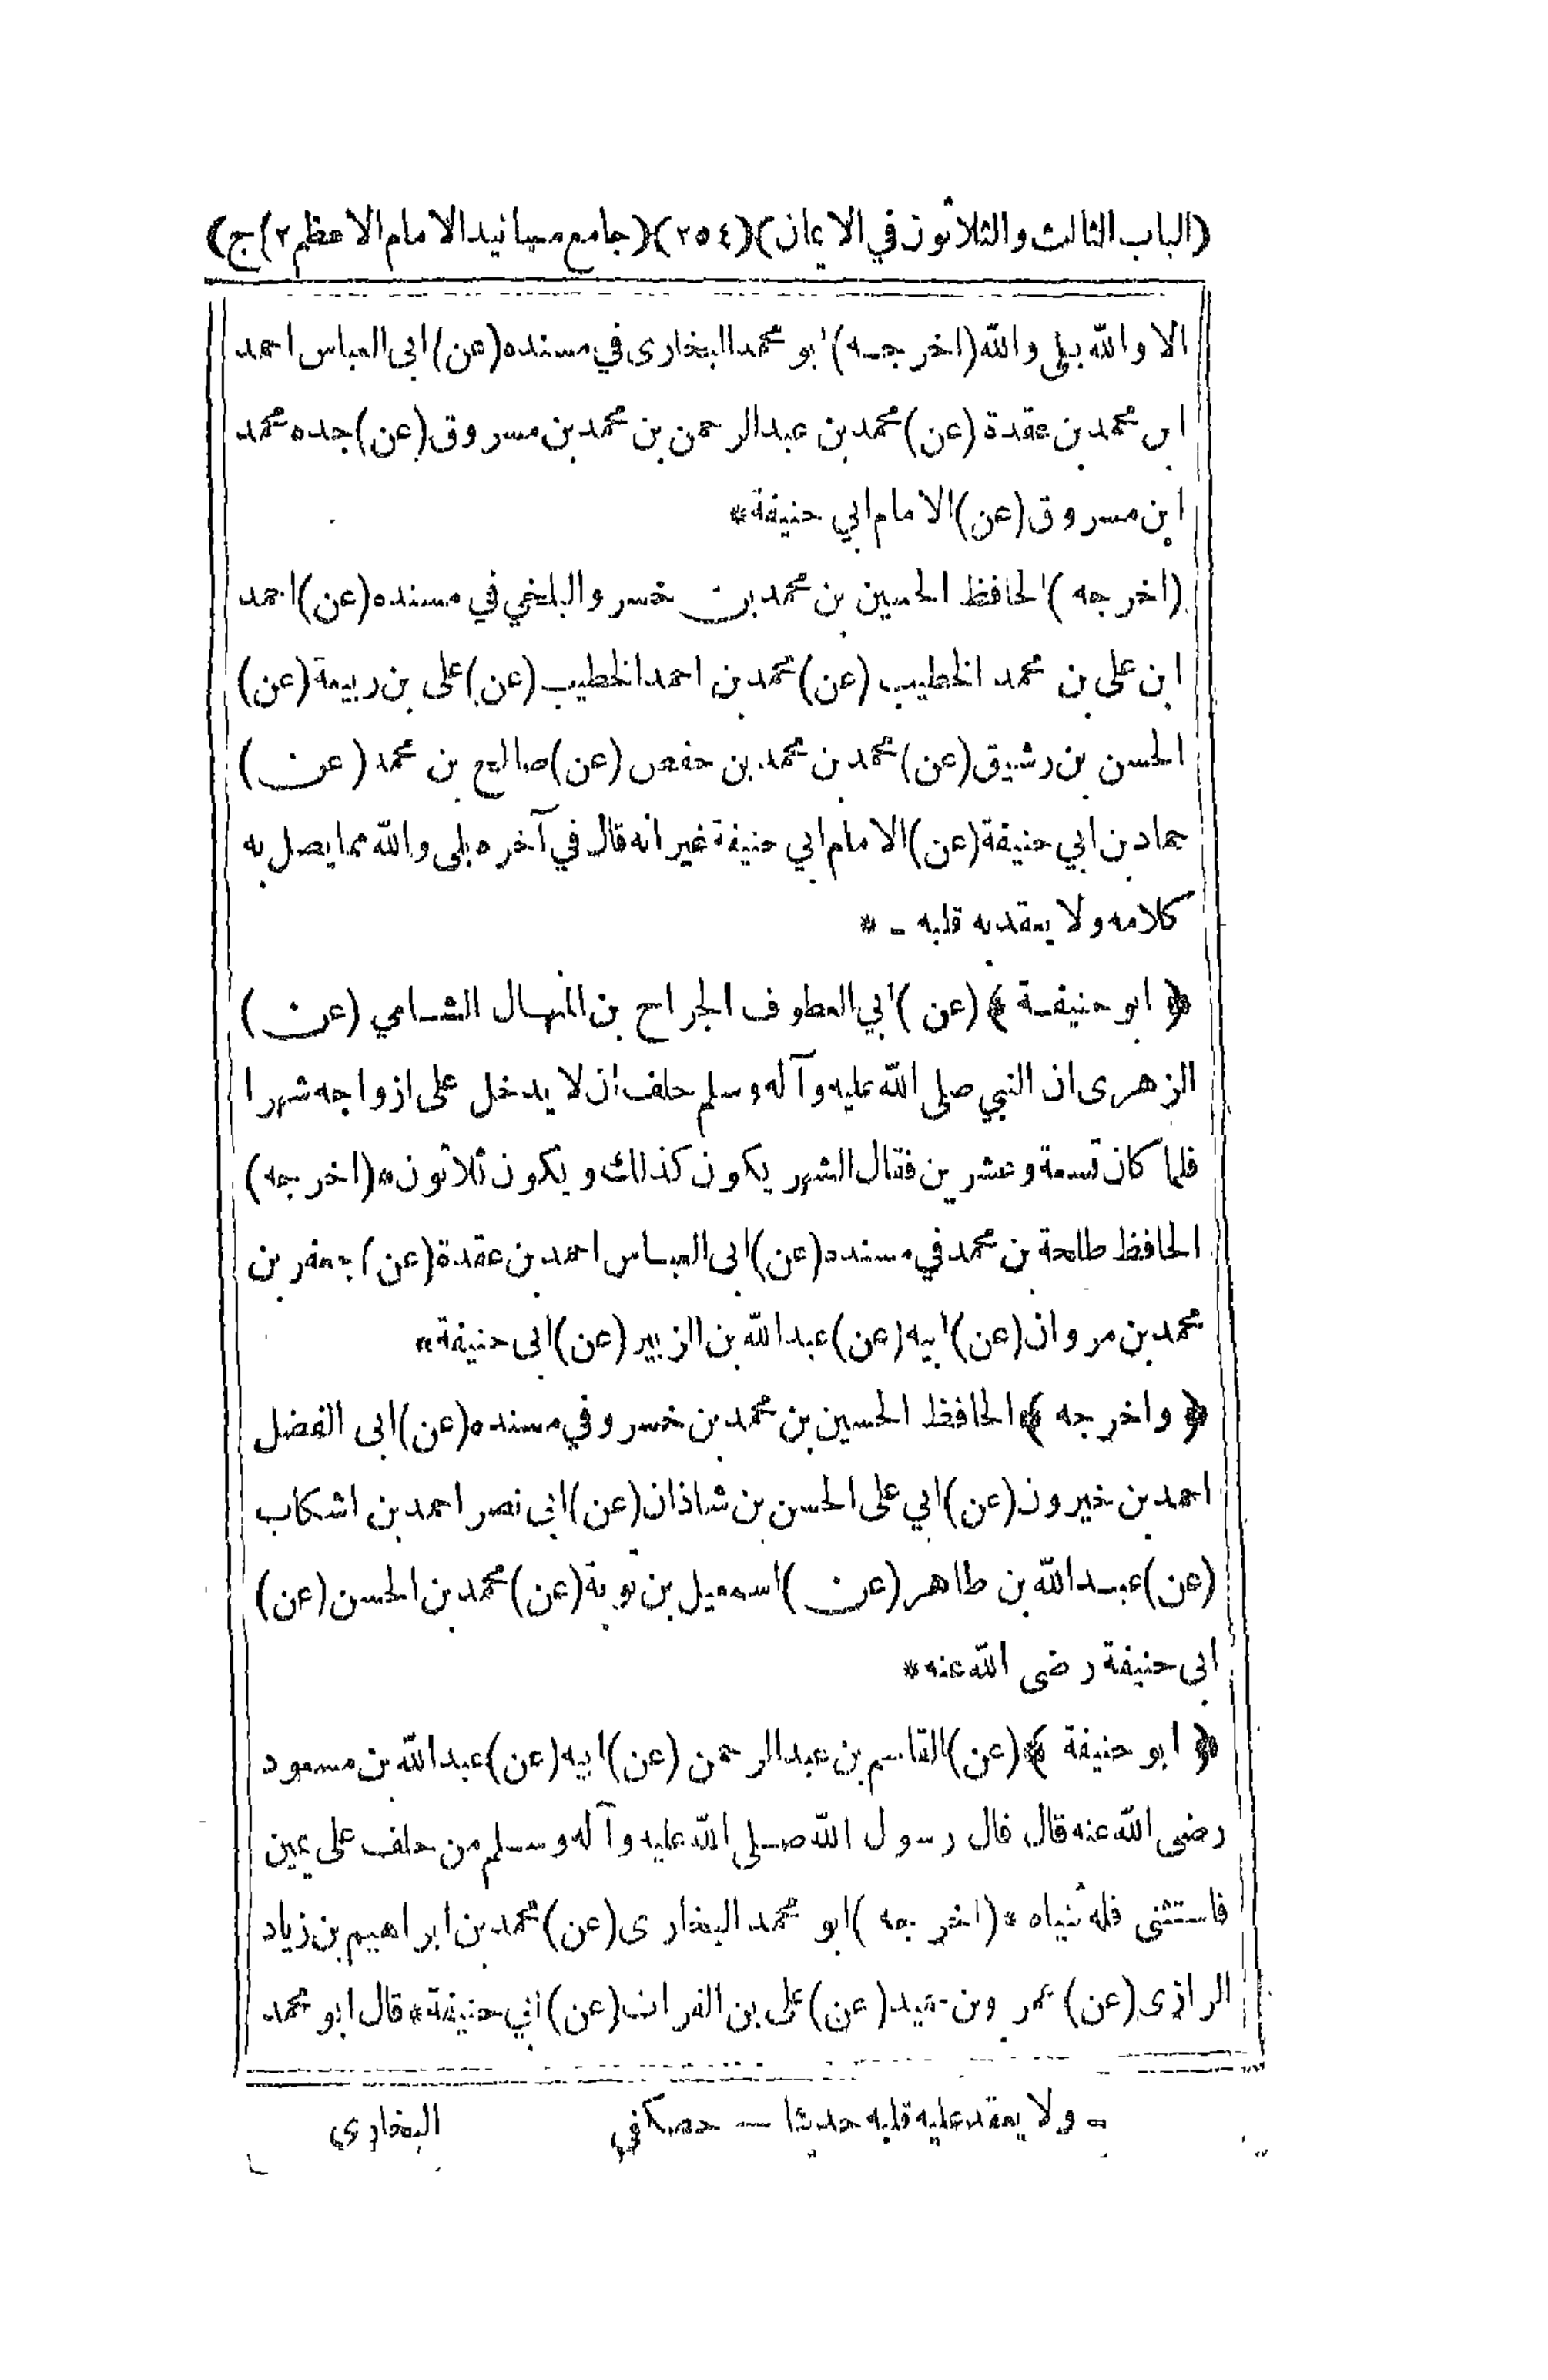 (الباب الثالث والثلاثون في الايمان) (٢٥٤) (جامع مسانيد الامام الاعظم ٢) ج)
الا والله بلى والله (اخرجه) ابو محمد البخارى في مسنده (عن) ابى العباس احمد
ابن محمد بن عقدة (عن) محمد بن عبد الرحمن بن محمد بن مسروق (عن) جده محمد
ابن مسروق (عن) الامام ابي حنيفة *
(اخرجه) الحافظ الحسين بن محمد بن خسرو البلخي في مسنده (عن) احمد
ابن على بن محمد الخطيب (عن) محمد بن احمد الخطيب (عن) على بن ربيعة (عن)
الحسن بن رشيق (عن) محمد بن محمد بن حفص (عن) صالح بن محمد (عن)
حماد بن ابي حنيفة (عن) الامام ابي حنيفة غير انه قال في آخره بلى والله مما يصل به
كلامه ولا يعقد به قلبه - *
﴿ ابو حنيفة ﴾ (عن) ابي العطوف الجراح بن المنهال الشامي (عن)
الزهرى ان النبي صلى الله عليه وآله وسلم حلف ان لا يدخل على ازواجه شهرا
فلما كان تسعة وعشرين فقال الشهر يكون كذلك ويكون ثلاثون * (اخرجه)
الحافظ طلحة بن محمد في مسنده (عن) ابى العباس احمد بن عقدة (عن) جعفر بن
محمد بن مروان (عن) ابيه (عن) عبد الله بن الزبير (عن) ابى حنيفة *
﴿ واخرجه ﴾ الحافظ الحسين بن محمد بن خسرو في مسنده (عن) ابى الفضل
احمد بن خيرون (عن) ابي على الحسن بن شاذان (عن) ابى نصر احمد بن اشكاب
(عن) عبد الله بن طاهر (عن) اسمعيل بن توبة (عن) محمد بن الحسن (عن)
ابى حنيفة رضى الله عنه *
﴿ ابو حنيفة ﴾ (عن) القاسم بن عبد الرحمن (عن) ابيه (عن) عبد الله بن مسعود
رضى الله عنه قال قال رسول الله صلى الله عليه وآله وسلم من حلف على يمين
فاستثنى فله ثنياه * (اخرجه) ابو محمد البخارى (عن) محمد بن ابراهيم بن زياد
الرازى (عن) عمرو بن حميد (عن) على بن الفرات (عن) ابي حنيفة * قال ابو محمد
ولا يعقد عليه قلبه حديثا — حصكفي
البخارى